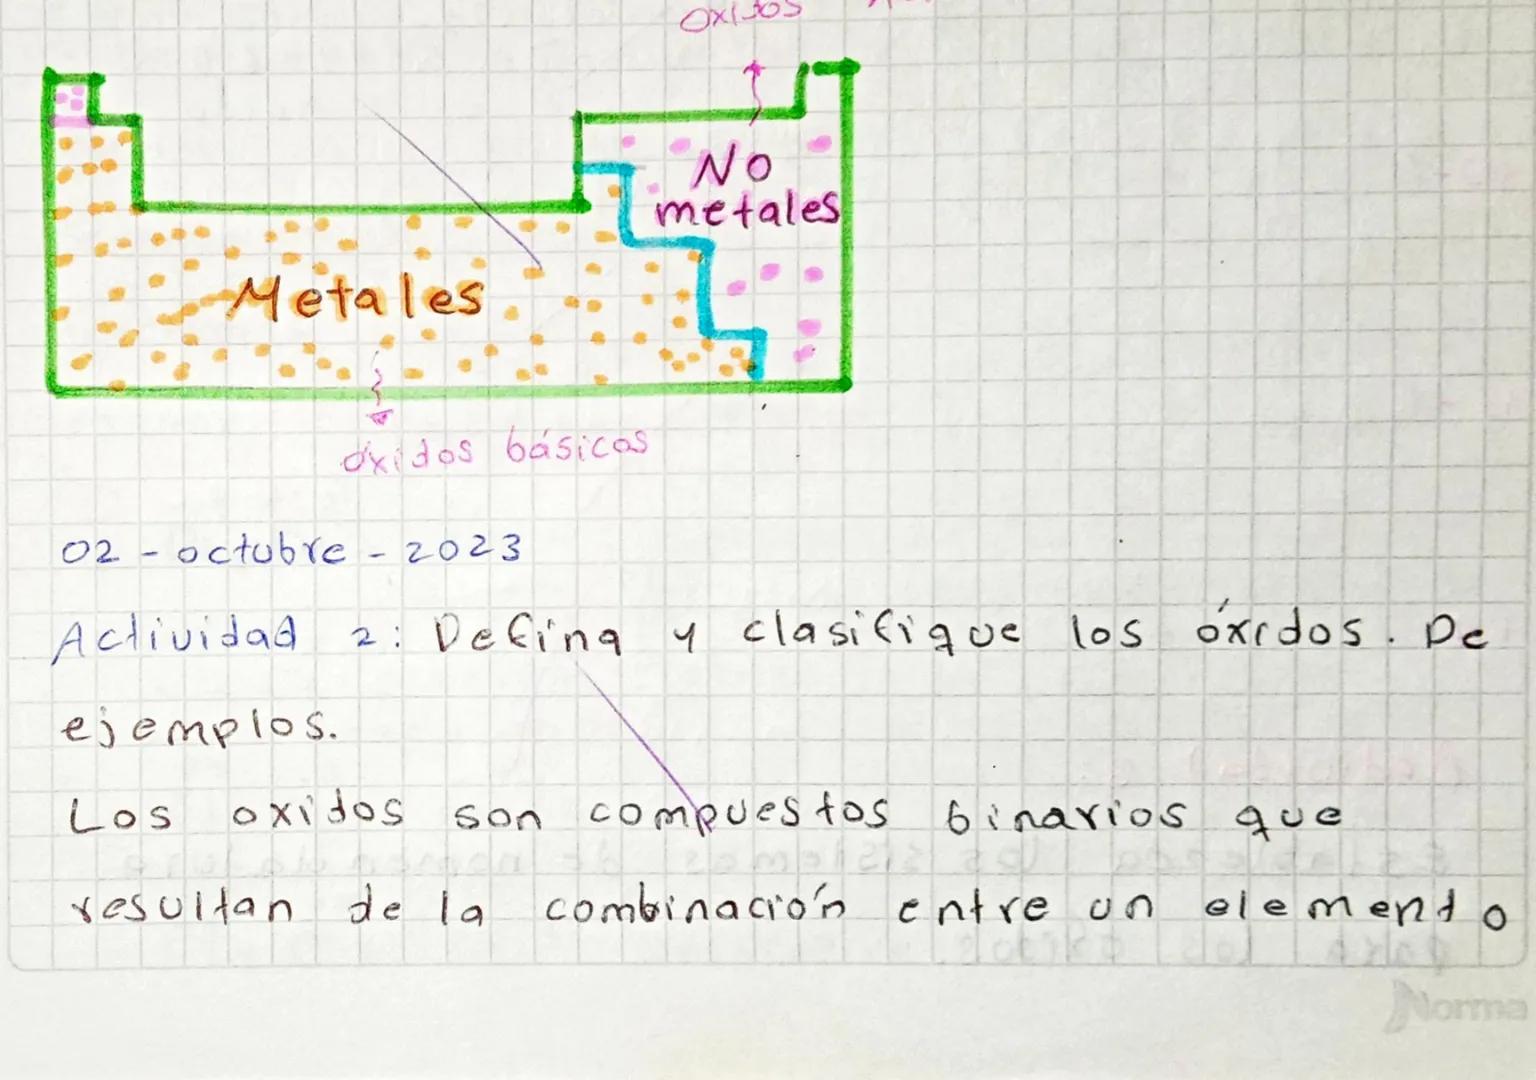 oxidos
No
metales
Metales
óxidos básicos
02 - octubre - 2023
Actividad 2: Defina y clasifique los óxidos. De
ejemplos.
Los oxidos son compuestos binarios que
resultan de la combinación entre un elemento
Norma